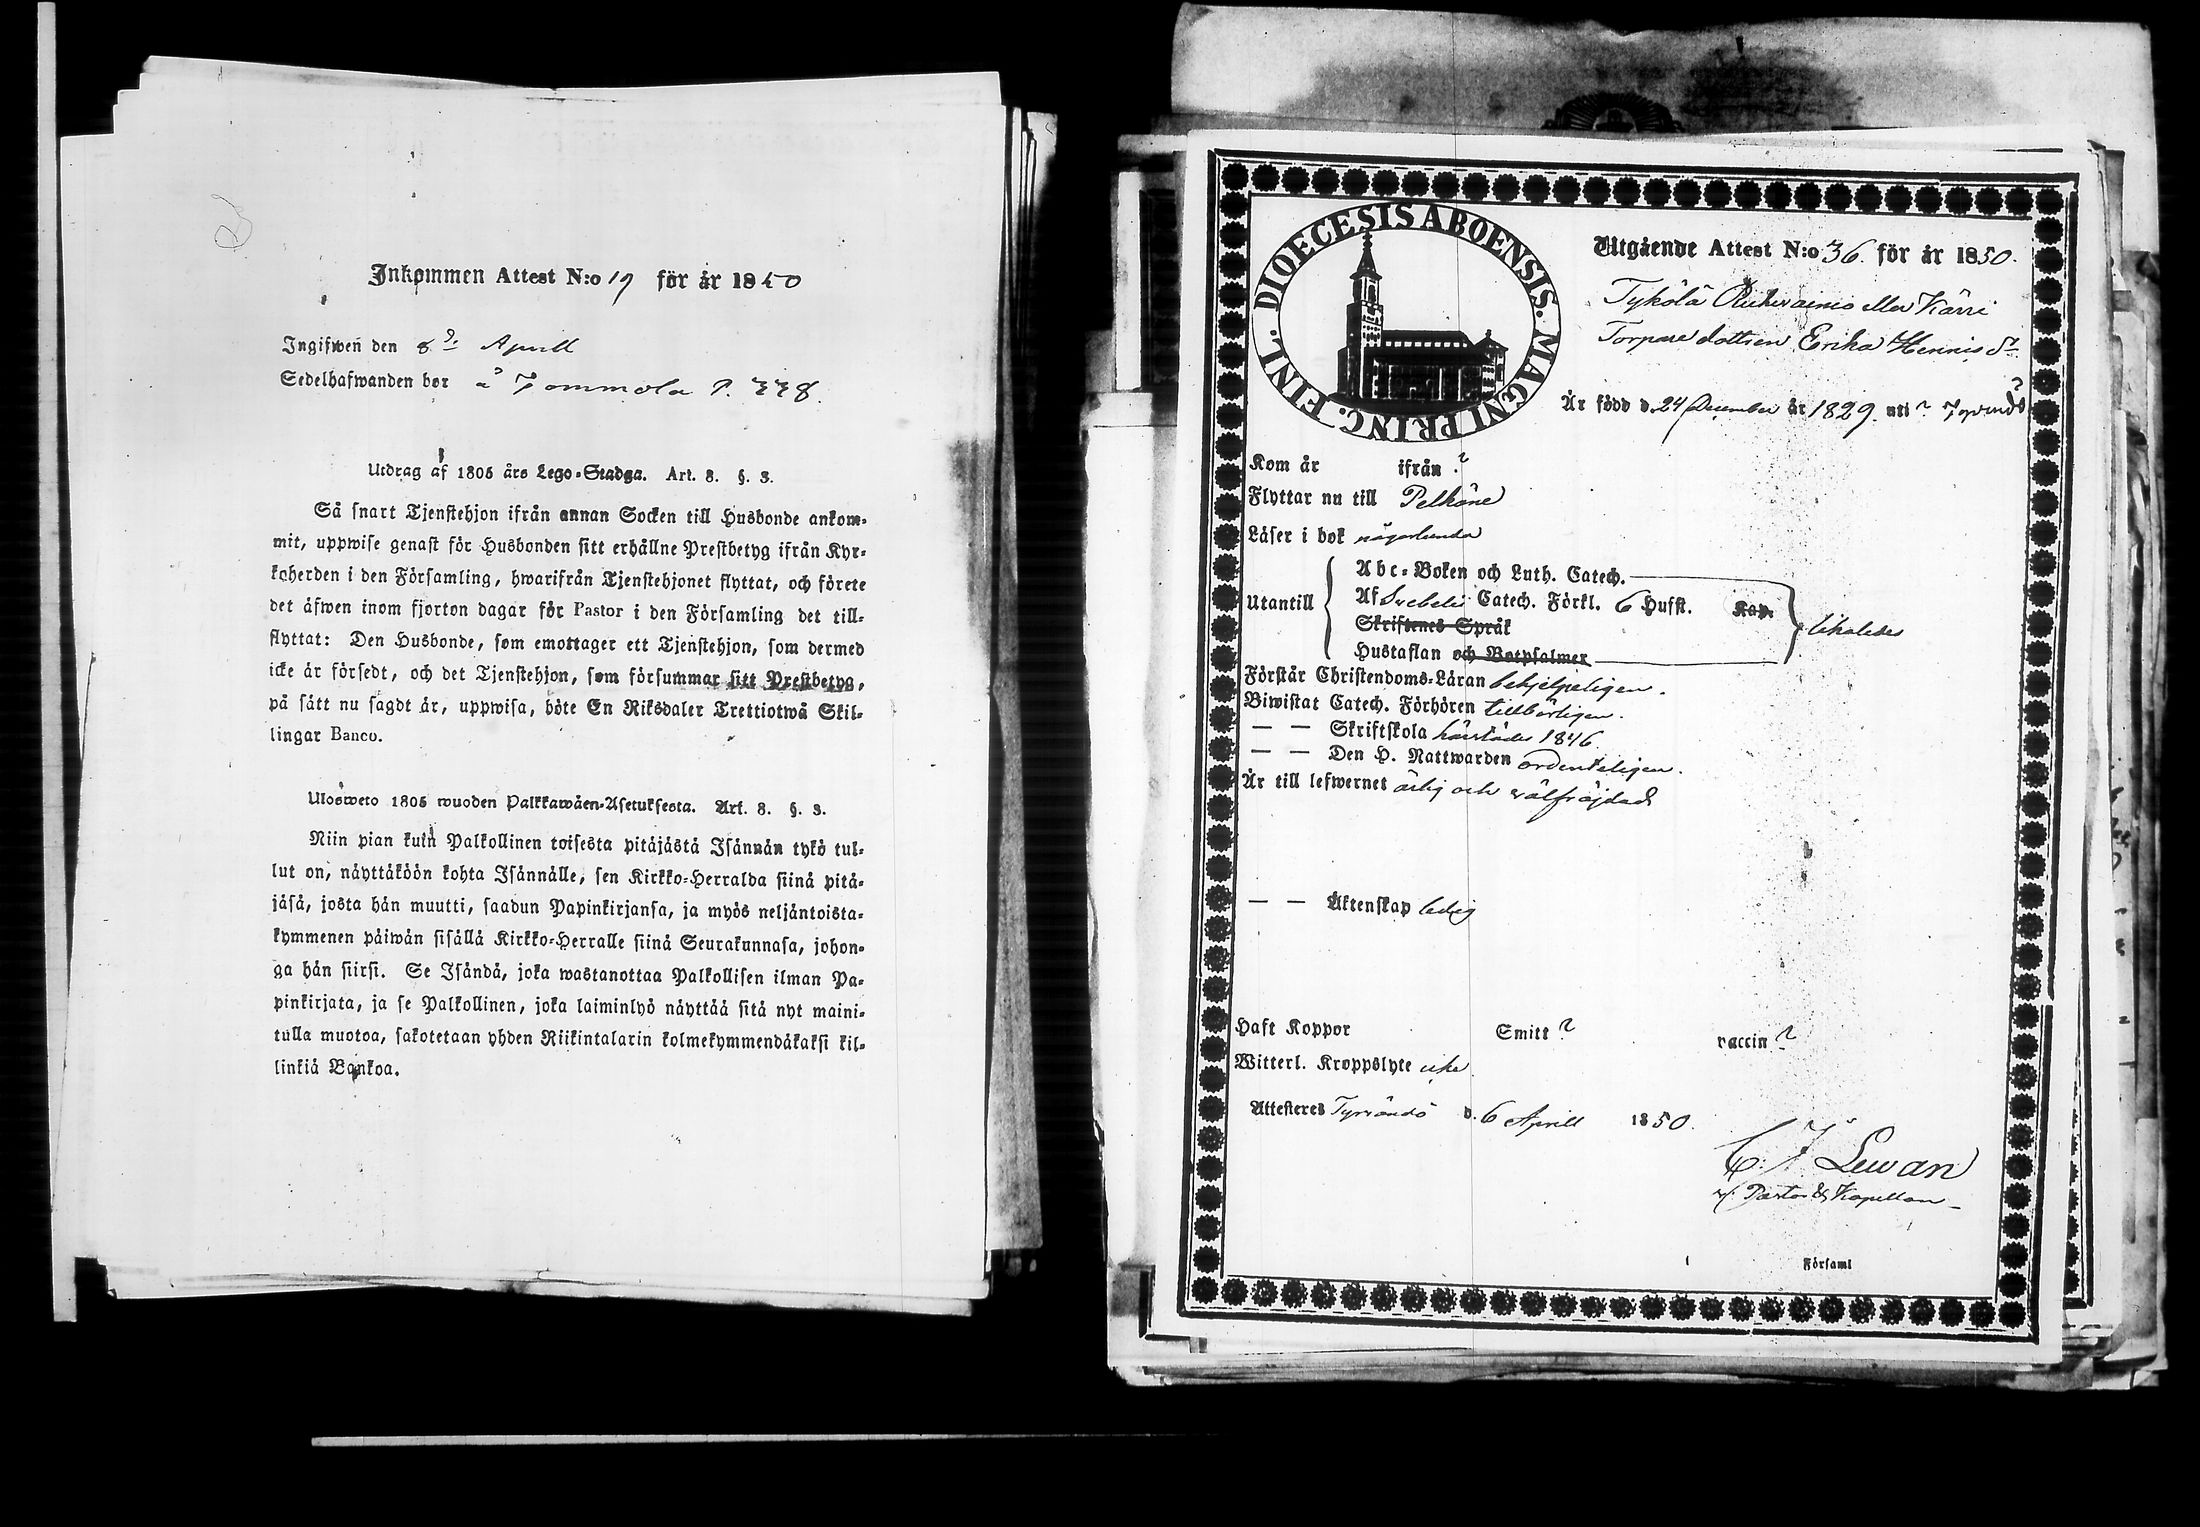 Inkommen Attest N:o 19 för år 1850
Ingifwen den 8de April
Sedelhafwanden bor å Tommola P. 338.
Utdrag af 1805 års Lego-Stadga. Art. 8. §. 3.
Så snart Tjenstehjon ifrån annan Socken till Husbonde ankom-
mit, uppwise genast för Husbonden sitt erhållne Prestbetyg ifrån Kyr-
koherden i den Församling, hwarifrån Tjenstehjonet flyttat, och förete
det äfwen inom fjorton dagar för Pastor i den Församling det till-
flyttat: Den Husbonde, som emottager ett Tjenstehjon, som dermed
icke är försedt, och det Tjenstehjon, som försummar sitt Prestbetyg,
på sätt nu sagdt är, uppwisa, böte En Riksdaler Trettiotwå Skil-
lingar Banco.
Ulosweto 1805 wuoden Palkkawäen-Asetuksesta. Art. 8. §. 3.
Niin pian kuin Palkollinen toisesta pitäjästä Isännän tykö tul-
lut on, näyttäköön kohta Isännälle, sen Kirkko-Herralda siinä pitä-
jäsä, josta hän muutti, saadun Papinkirjansa, ja myös neljäntoista-
kymmenen päiwän sisällä Kirkko-Herralle siinä Seurakunnasa, johon-
ga hän siirsi. Se Isändä, joka wastanottaa Palkollisen ilman Pa-
pinkirjata, ja se Palkollinen, joka laiminlyö näyttää sitä nyt maini-
tulla muotoa, sakotetaan yhden Riikintalarin kolmekymmendäkaksi kil-
linkiä Bankoa.
DIOECESIS ABOENSIS. MAGNI PRINC. FINL.
Utgående Attest N:o 36. för år 1850.
Tykölä eller Kärri
Torpare dottren Erika Hennis dr
Är född d. 24 December år 1829. uti ?
Kom år ifrån ?
Flyttar nu till Pelkäne
Läser i bok någorlunda
Abc-Boken och Luth. Catech.
Utantill Af Svebelii Catech. Förkl. 6 Hufst. Kap. likaledes
Skriftenes Språk
Hustaflan och Botpsalmer
Förstår Christendoms-Läran behjelpeligen.
Biwistat Catech. Förhören tillbörligen.
— — Skriftskola härstädes 1846.
— — Den H. Nattwarden ordenteligen.
Är till lefwernet ärlig och välfräjdad
— — Äktenskap ledig
Haft Koppor Smitt ? vaccin ?
Witterl. Kroppslyte icke
Attesteres Tyrvändö d. 6 April 1850.
C. J. Lewan
v. Pastor & Kapellan
Församl